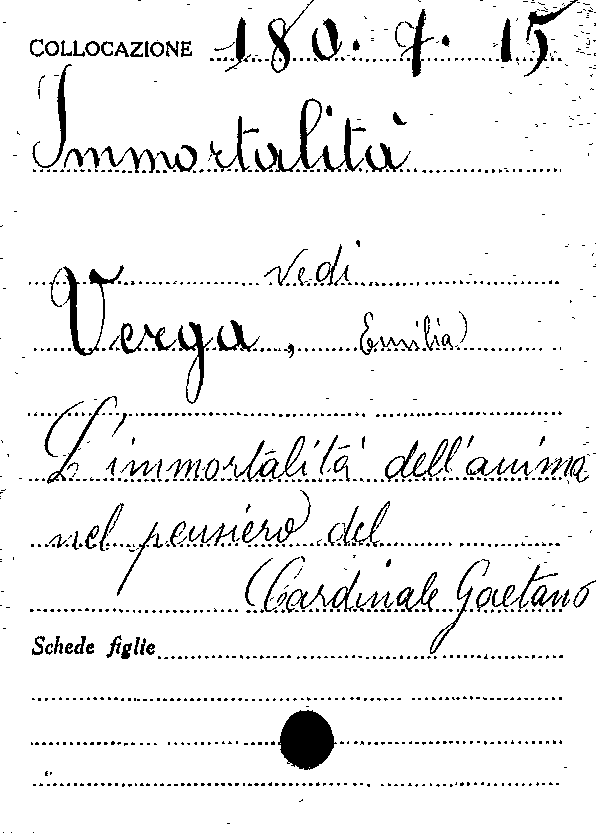 COLLOCAZIONE 180. 7. 15
Immortalità
vedi
Verga, Emilia
L'immortalità dell'anima
nel pensiero del
Cardinale Gaetano
Schede figlie